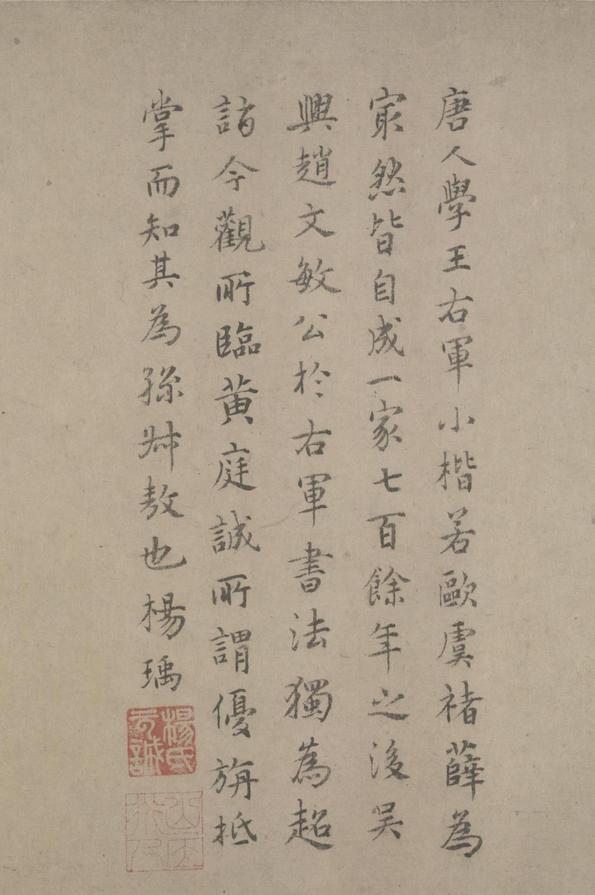 唐人學王右軍小楷若歐虞褚薛為
㝡然皆自成一家七百餘年之後吳
興趙文敏公於右軍書法獨為超
詣今觀所臨黃庭誠所謂優旃抵
掌而知其為孫叔敖也楊瑀
楊氏元誠